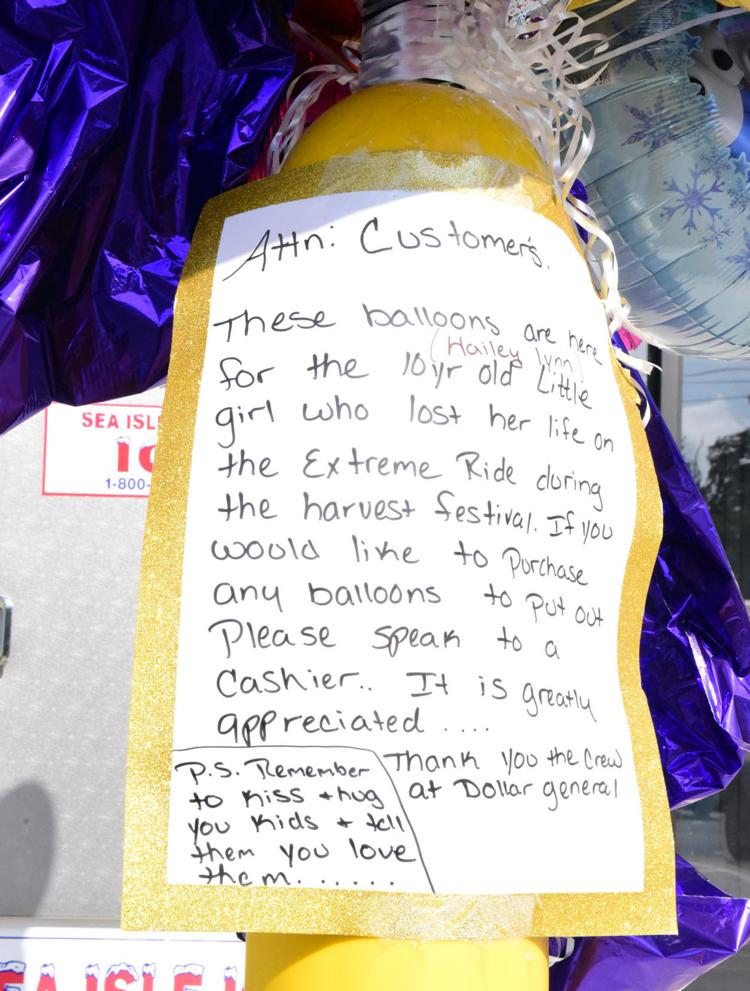 Attn: Customer's.
These balloons are here
(Hailey Lynn)
for the 10yr old Little
girl who lost her life on
the Extreme Ride during
the harvest festival. If you
would like to Purchase
any balloons to put out
Please speak to a
Cashier.. It is greatly
appreciated ....
Thank you the Crew
at Dollar general
P.S. Remember
to Kiss + hug
you Kids + tell
them you love
them......
SEA ISL
IC
1-800-
EA ISLE I